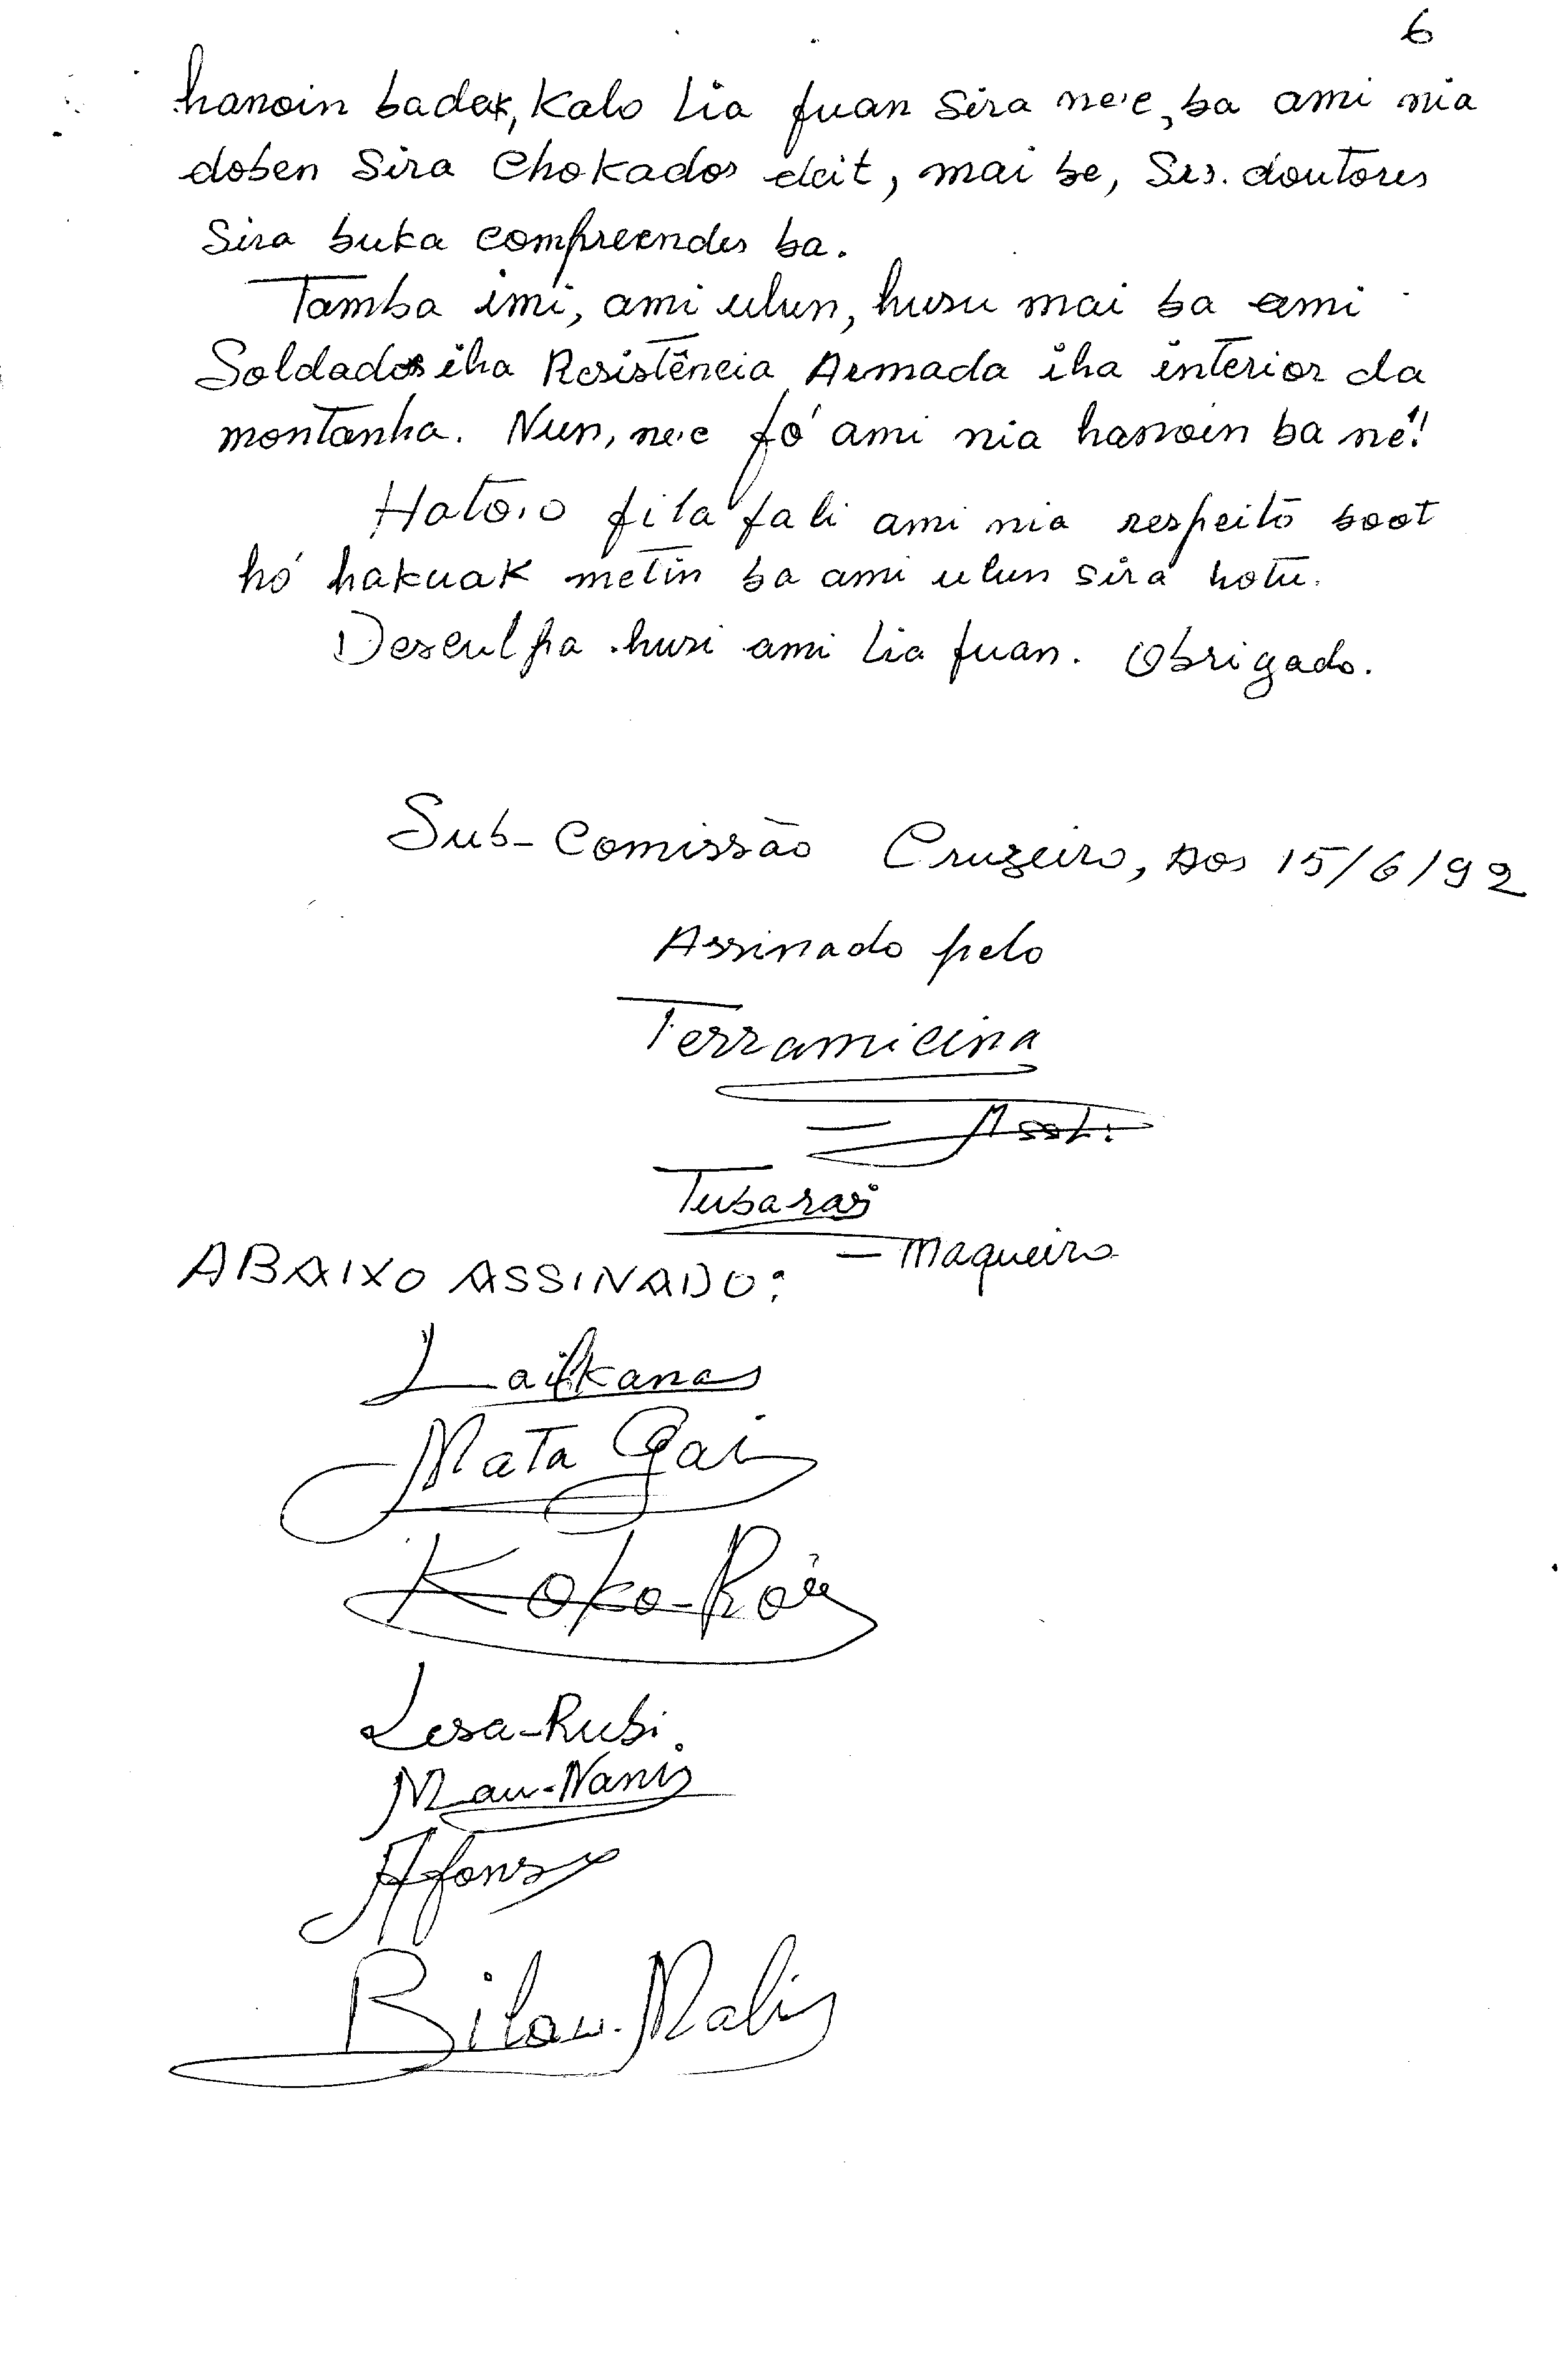 6
hanoin badak, Kalo Lia fuan sira ne'e, ba ami nia
doben sira chokados deit, mai be, Srs. doutores
sira buka compreender ba.
Tamba imi, ami ulun, husu mai ba ami
Soldados iha Resistência Armada iha interior da
montanha. Nun, ne'e fó ami nia hanoin ba né!!
Hato'o fila fali ami nia respeito boot
hó hakuak metin ba ami ulun sira hotu.
Desculpa husi ami Lia fuan. Obrigado.
Sub-Comissão Cruzeiro, Aos 15/6/92
Assinado pelo
Terramicina
= Asst:
Tubarai
- Maqueiro
ABAIXO ASSINADO:
Mata Gai
Lesa-Rubi
Mau-Nani
Afonso
Bilau-Mali